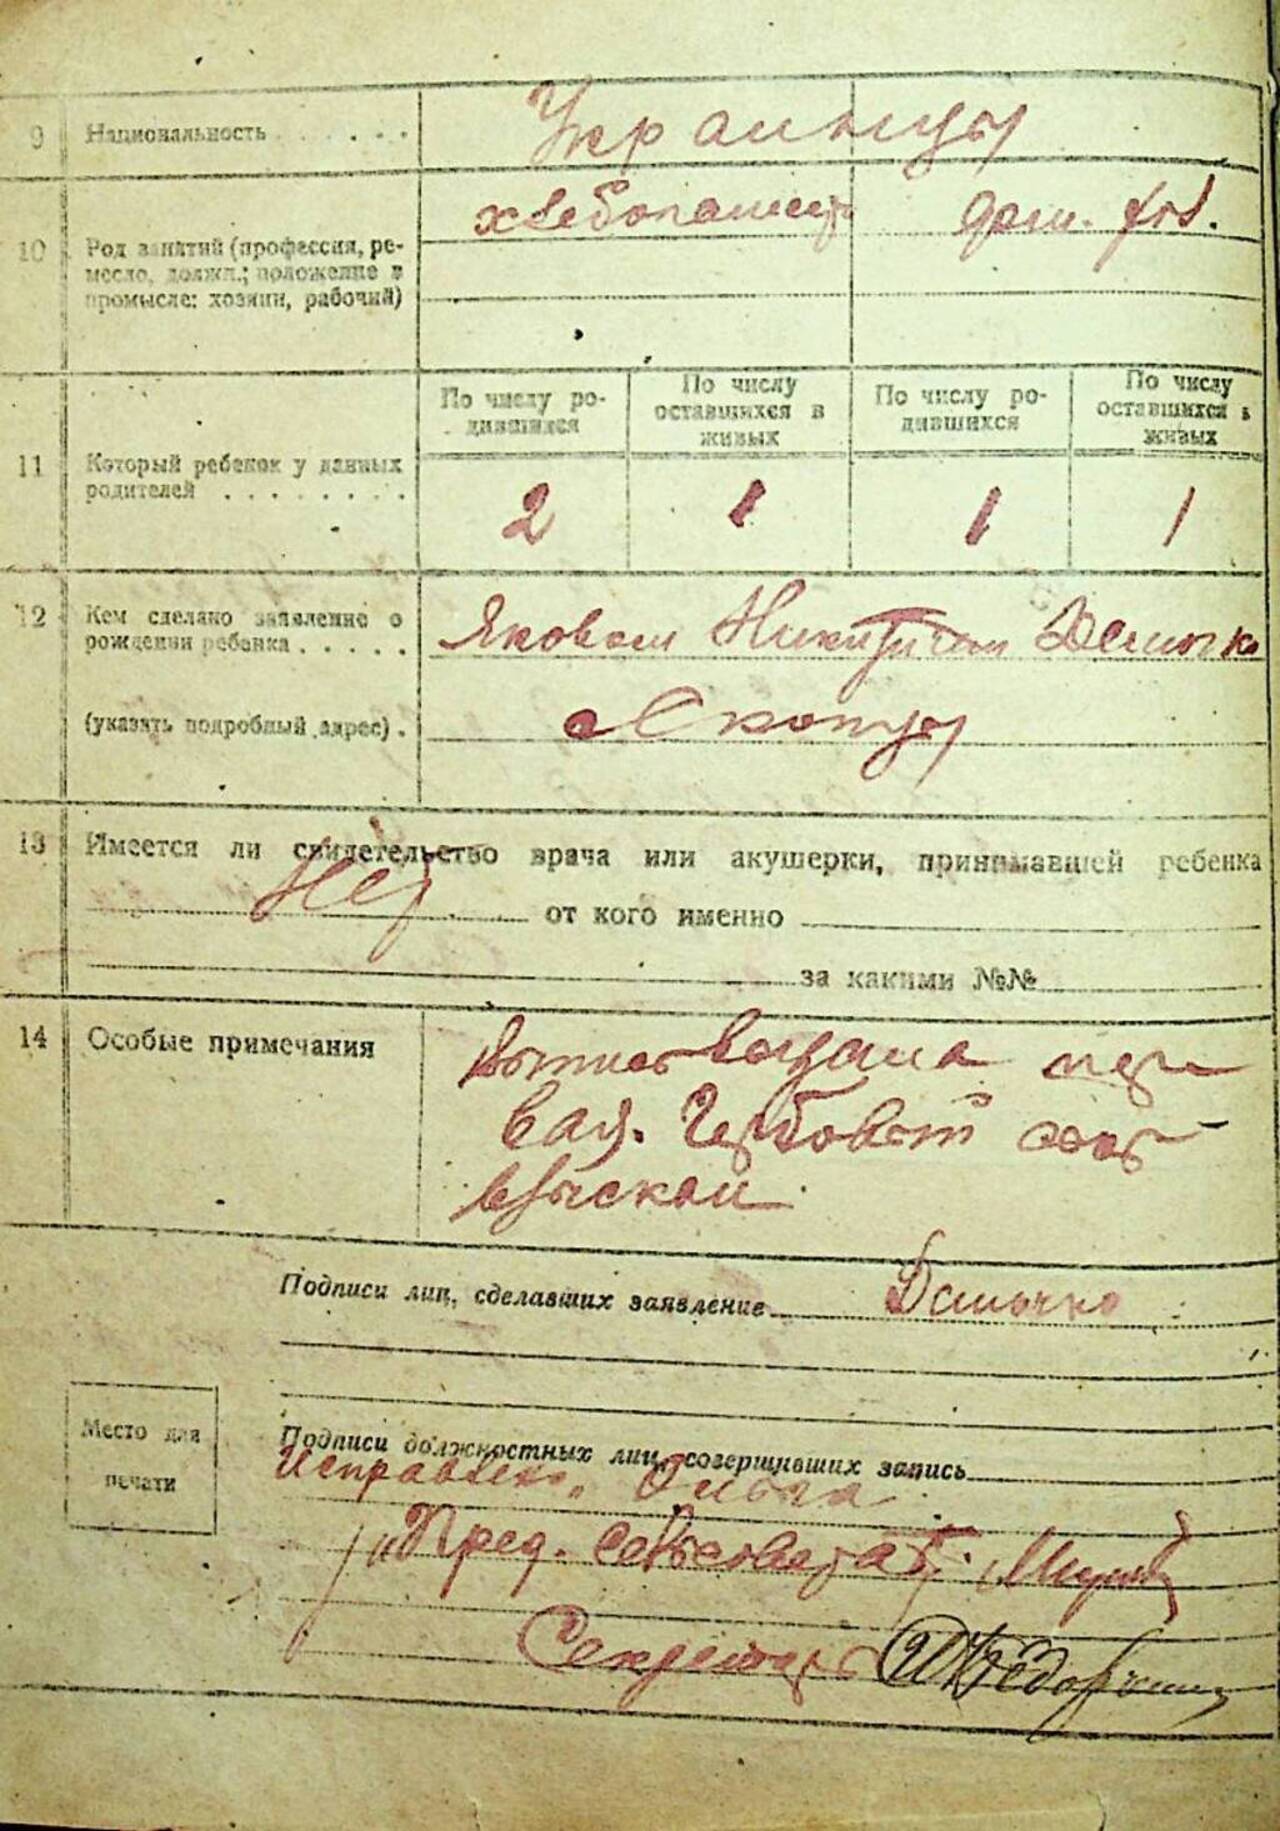 9 Национальность . . . . . . Украинцы
хлебопашец
10 Род занятий (профессия, ре-
месло, должн.; положение в
промысле: хозяин, рабочий)
По числу ро-
дившихся
По числу
оставшихся в
живых
По числу ро-
дившихся
По числу
оставшихся в
живых
11 Который ребенок у данных
родителей . . . . . . . .
2 1 1 1
12 Кем сделано заявление о
рождении ребенка . . . . .
Яковом Никитичем
(указать подробный адрес) .
13 Имеется ли свидетельство врача или акушерки, принимавшей ребенка
Нет от кого именно
за какими №№
14 Особые примечания
выдана пер-
вая. Гербовой
взыскан
Подписи лиц, сделавших заявление
Место для
печати
Подписи должностных лиц, совершивших запись
Исправлено „ Ольга
Пред. сельсовета
Секретарь